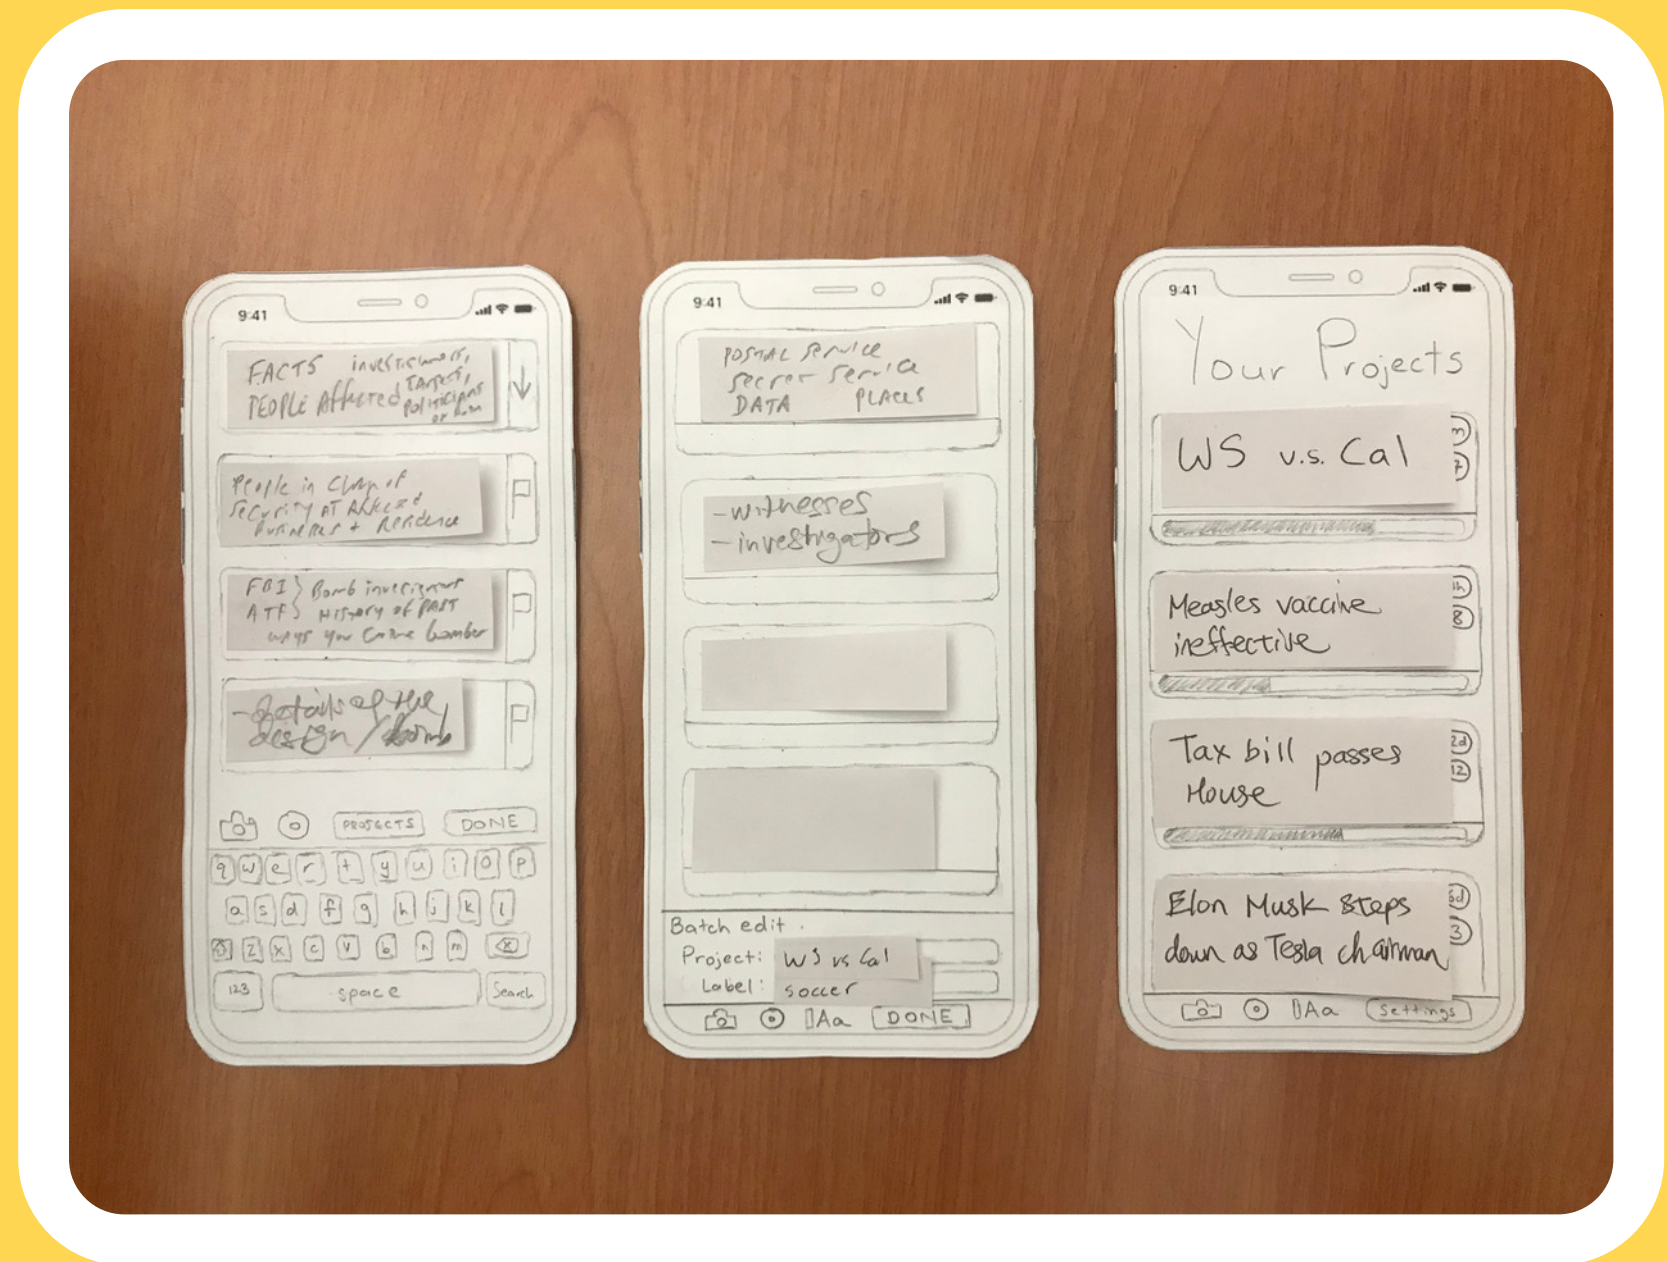 9:41
FACTS
PEOPLE Affected TARGETS,
POLITICIANS
People in Charge of
SECURITY AT Affected
Businesses + Residence
FBI } Bomb
ATF } HISTORY of PAST
ways you bomber
- details of the
design / bomb
PROJECTS DONE
q w e r t y u i o p
a s d f g h j k l
z x c v b n m
123 space Search
9:41
POSTAL SERVICE
Secret Service
DATA PLACES
- witnesses
- investigators
Batch edit
Project: WS vs Cal
Label: soccer
Aa DONE
9:41
Your Projects
WS v.s. Cal
7
Measles vaccine
ineffective
1h
8
Tax bill passes
House
2d
12
Elon Musk steps
down as Tesla chairman
3
Aa Settings